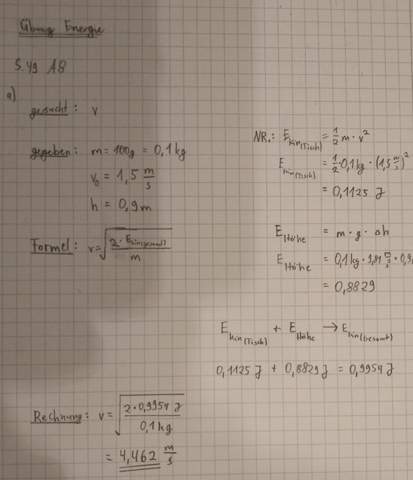 Übung Energie
S. 49 A8
a)
gesucht: v
gegeben: m = 100g = 0,1 kg
v₀ = 1,5 m/s
h = 0,9 m
Formel: v = √(2 · E kin(gesamt) / m)
NR.: E kin(Tisch) = 1/2 m · v²
E kin(Tisch) = 1/2 · 0,1 kg · (1,5 m/s)²
= 0,1125 J
E Höhe = m · g · Δh
E Höhe = 0,1 kg · 9,81 m/s² · 0,9
= 0,8829
E kin(Tisch) + E Höhe → E kin(Gesamt)
0,1125 J + 0,8829 J = 0,9954 J
Rechnung: v = √(2 · 0,9954 J / 0,1 kg)
= 4,462 m/s